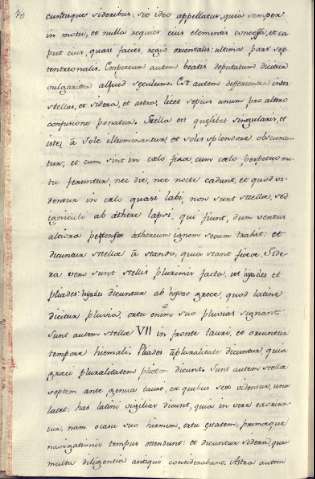 70
cunctisque sideribus, sic ideo appellatur, quia semper
in motu, et nulla requies eius elementi concessa, et ca
put eius, quasi facies regio orientalis: ultima pars sep
tentrionalis.
autem
Est autem differentia inter
stellas, et sidera, et astra, licet sepius unum pro altero
confusione ponatur. Stella est quaelibet singularis, et
a Sole illuminantur, et solis splendore obscuran
tur, et cum sint in caelo fixa, cum caelo perpetuo mo
tu feruntur, nec die, nec nocte cadunt, et quod vi
dentur in caelo quasi labi, non sunt stellae, sed
igniculi ab aethere lapsi, qui fiunt, dum ventus
altiora aethereum ignem secum trahit et
dicuntur stellae a stando, quia stant fixae. Side
ra vero sunt stellis plurimis facta, ut hyades et
pliades hyades dicuntur ab greco, quod latine
dicitur pluvia, ortu enim suo pluvias signant.
Sunt autem stellae VII in fronte tauri, et oriuntur
tempore hiemali. Pliades a pluralitate dicuntur, quia
greci pluralitatem dicunt. Sunt autem stellae
septem ante genua tauri, ex quibus sex videntur, una
latet. has latini vigilias dicunt, quia in vere exoriun
tur, nam ocasu suo hiemem, ortu estatem, primaeque
navigationis tempus ostendunt. et dicuntur sidera, quia
multa diligentia antiqui considerabant. Astra autem